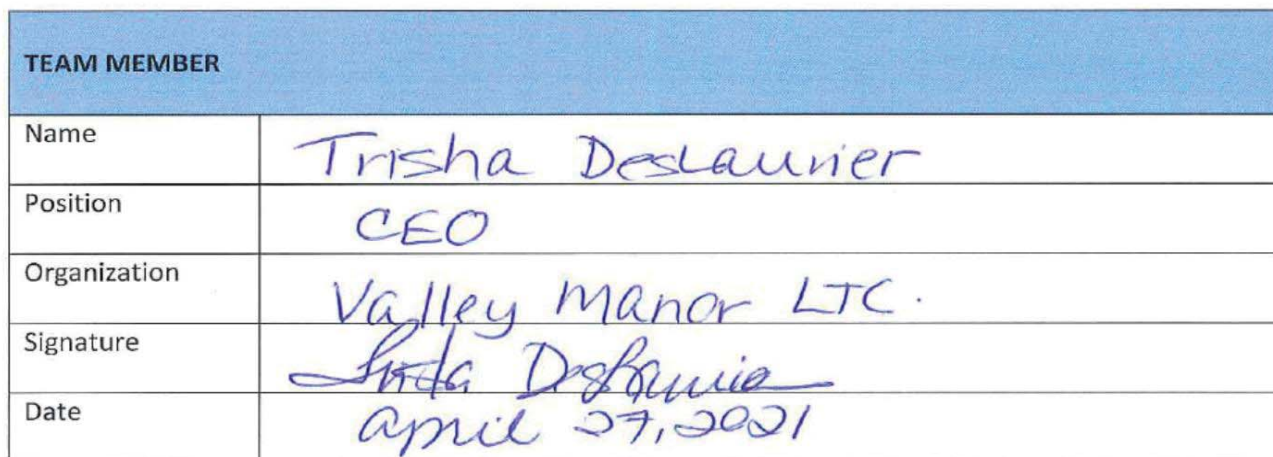 TEAM MEMBER
Name Trisha DesLaurier
Position CEO
Organization Valley Manor LTC.
Signature
Date April 27, 2021